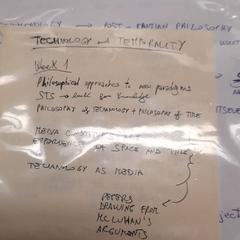 POST-KANTIAN PHILOSOPHY
TECHNOLOGY and TEMPORALITY
Week 1
Philosophical approaches to new paradigms
STS → look for knowledge
PHILOSOPHY of TECHNOLOGY + PHILOSOPHY of TIME
MEDIA
EXPERIENCE OF SPACE AND TIME
TECHNOLOGY AS MEDIA
PETERS
DRAWING FROM
MCLUHAN'S
ARGUMENTS